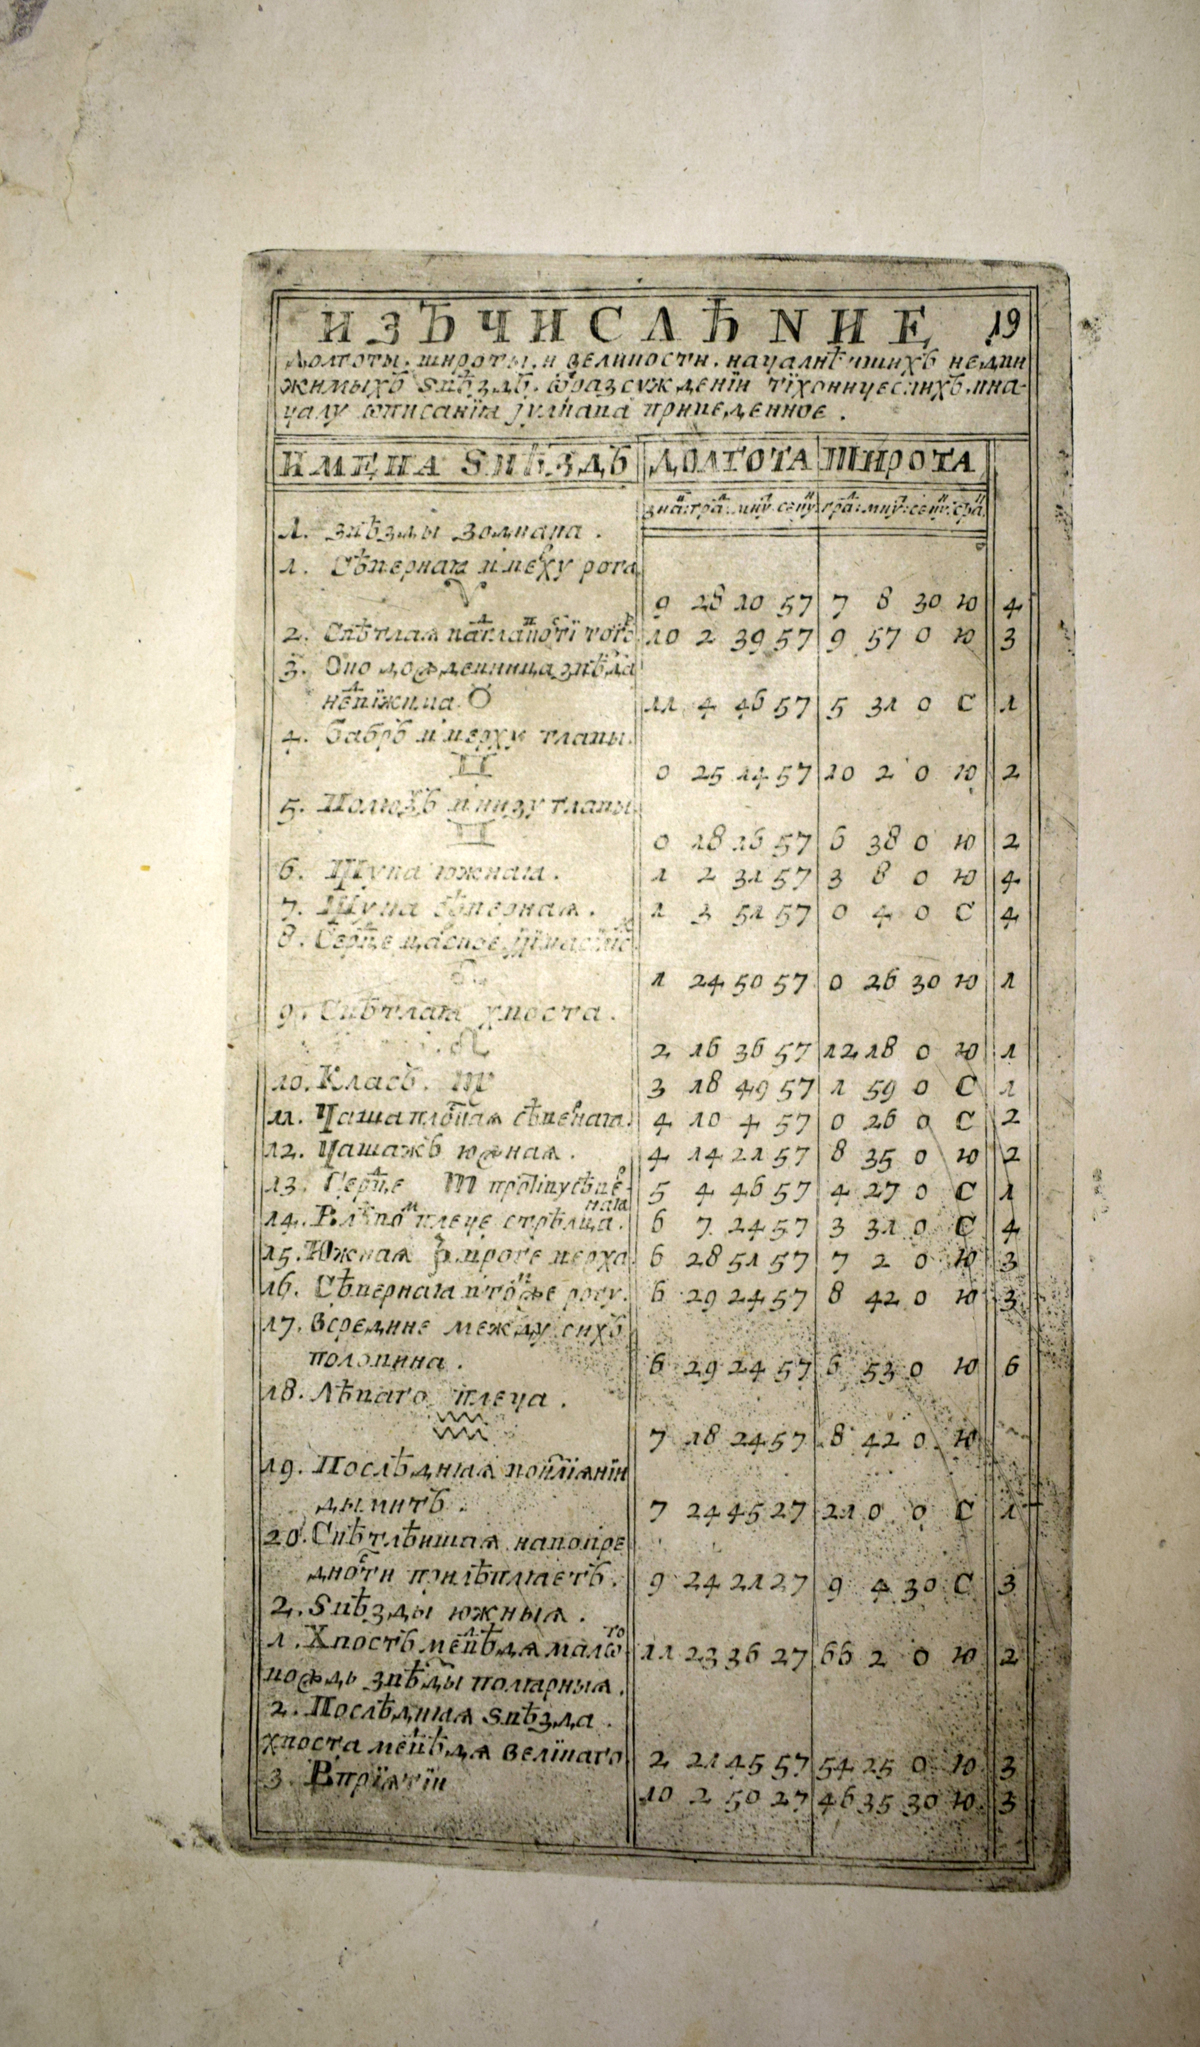 ИЗЪЧИСЛѢNИЕ 19
Долготы. широты. и велиности. началнѣишихъ недви
жимыхъ ѕвѣздъ. ѿ разсуждениїи тїхоническихъ. ина
чалу ѡписанїꙗ јулиана приведенное .
ИМЕНА ЅВѢЗДЪ ДОЛГОТА ШИРОТА
зна: гра: мину: секу: гра: мину: секу: стра
1. звѣзды зодиака .
1. Сѣвернаꙗ вверху рога
♈ 9 28 10 57 7 8 30 ю 4
2. Свѣтлаѧ 10 2 39 57 9 57 0 ю 3
3. Око
♉ 11 4 46 57 5 31 0 С 1
4. вверху главы.
♊ 0 25 14 57 10 2 0 ю 2
5. Полюхъ внизу главы
♊ 0 18 16 57 6 38 0 ю 2
6. Щупа южнаꙗ. 1 2 31 57 3 8 0 ю 4
7. Щупа сѣвернаѧ. 1 3 51 57 0 4 0 С 4
8. Серце
♌ 1 24 50 57 0 26 30 ю 1
9. Свѣтлаꙗ хвоста.
♌ 2 16 36 57 12 18 0 ю 1
10. Класъ. ♍ 3 18 49 57 1 59 0 С 1
11. Чаша сѣвернаꙗ. 4 10 4 57 0 26 0 С 2
12. Чашажъ южнаѧ. 4 14 21 57 8 35 0 ю 2
13. Серце ♏ 5 4 46 57 4 27 0 С 1
14. Влѣвом плече стрѣлца. 6 7 24 57 3 31 0 С 4
15. Южнаѧ ♑ вроге верха 6 28 51 57 7 2 0 ю 3
16. Сѣвернаꙗ втомже рогу. 6 29 24 57 8 42 0 ю 3
17. Всредине между сихъ
половина. 6 29 24 57 6 53 0 ю 6
18. Лѣваго плеча.
♒ 7 18 24 57 8 42 0 ю
19. Послѣднꙗѧ
7 24 45 27 21 0 0 С 1
20. Свѣтлѣишаѧ напопре
дности прилѣплꙗетъ. 9 24 21 27 9 4 30 С 3
2. Ѕвѣзды южныѧ.
1. Хвостъ медвѣдѧ малого 11 23 36 27 66 2 0 ю 2
звѣзды полꙗрныѧ.
2. Послѣднꙗѧ ѕвѣзда.
хвоста медвѣдѧ великаго 2 21 45 57 54 25 0 ю 3
3 Вприѧтїи 10 2 50 27 46 35 30 ю 3